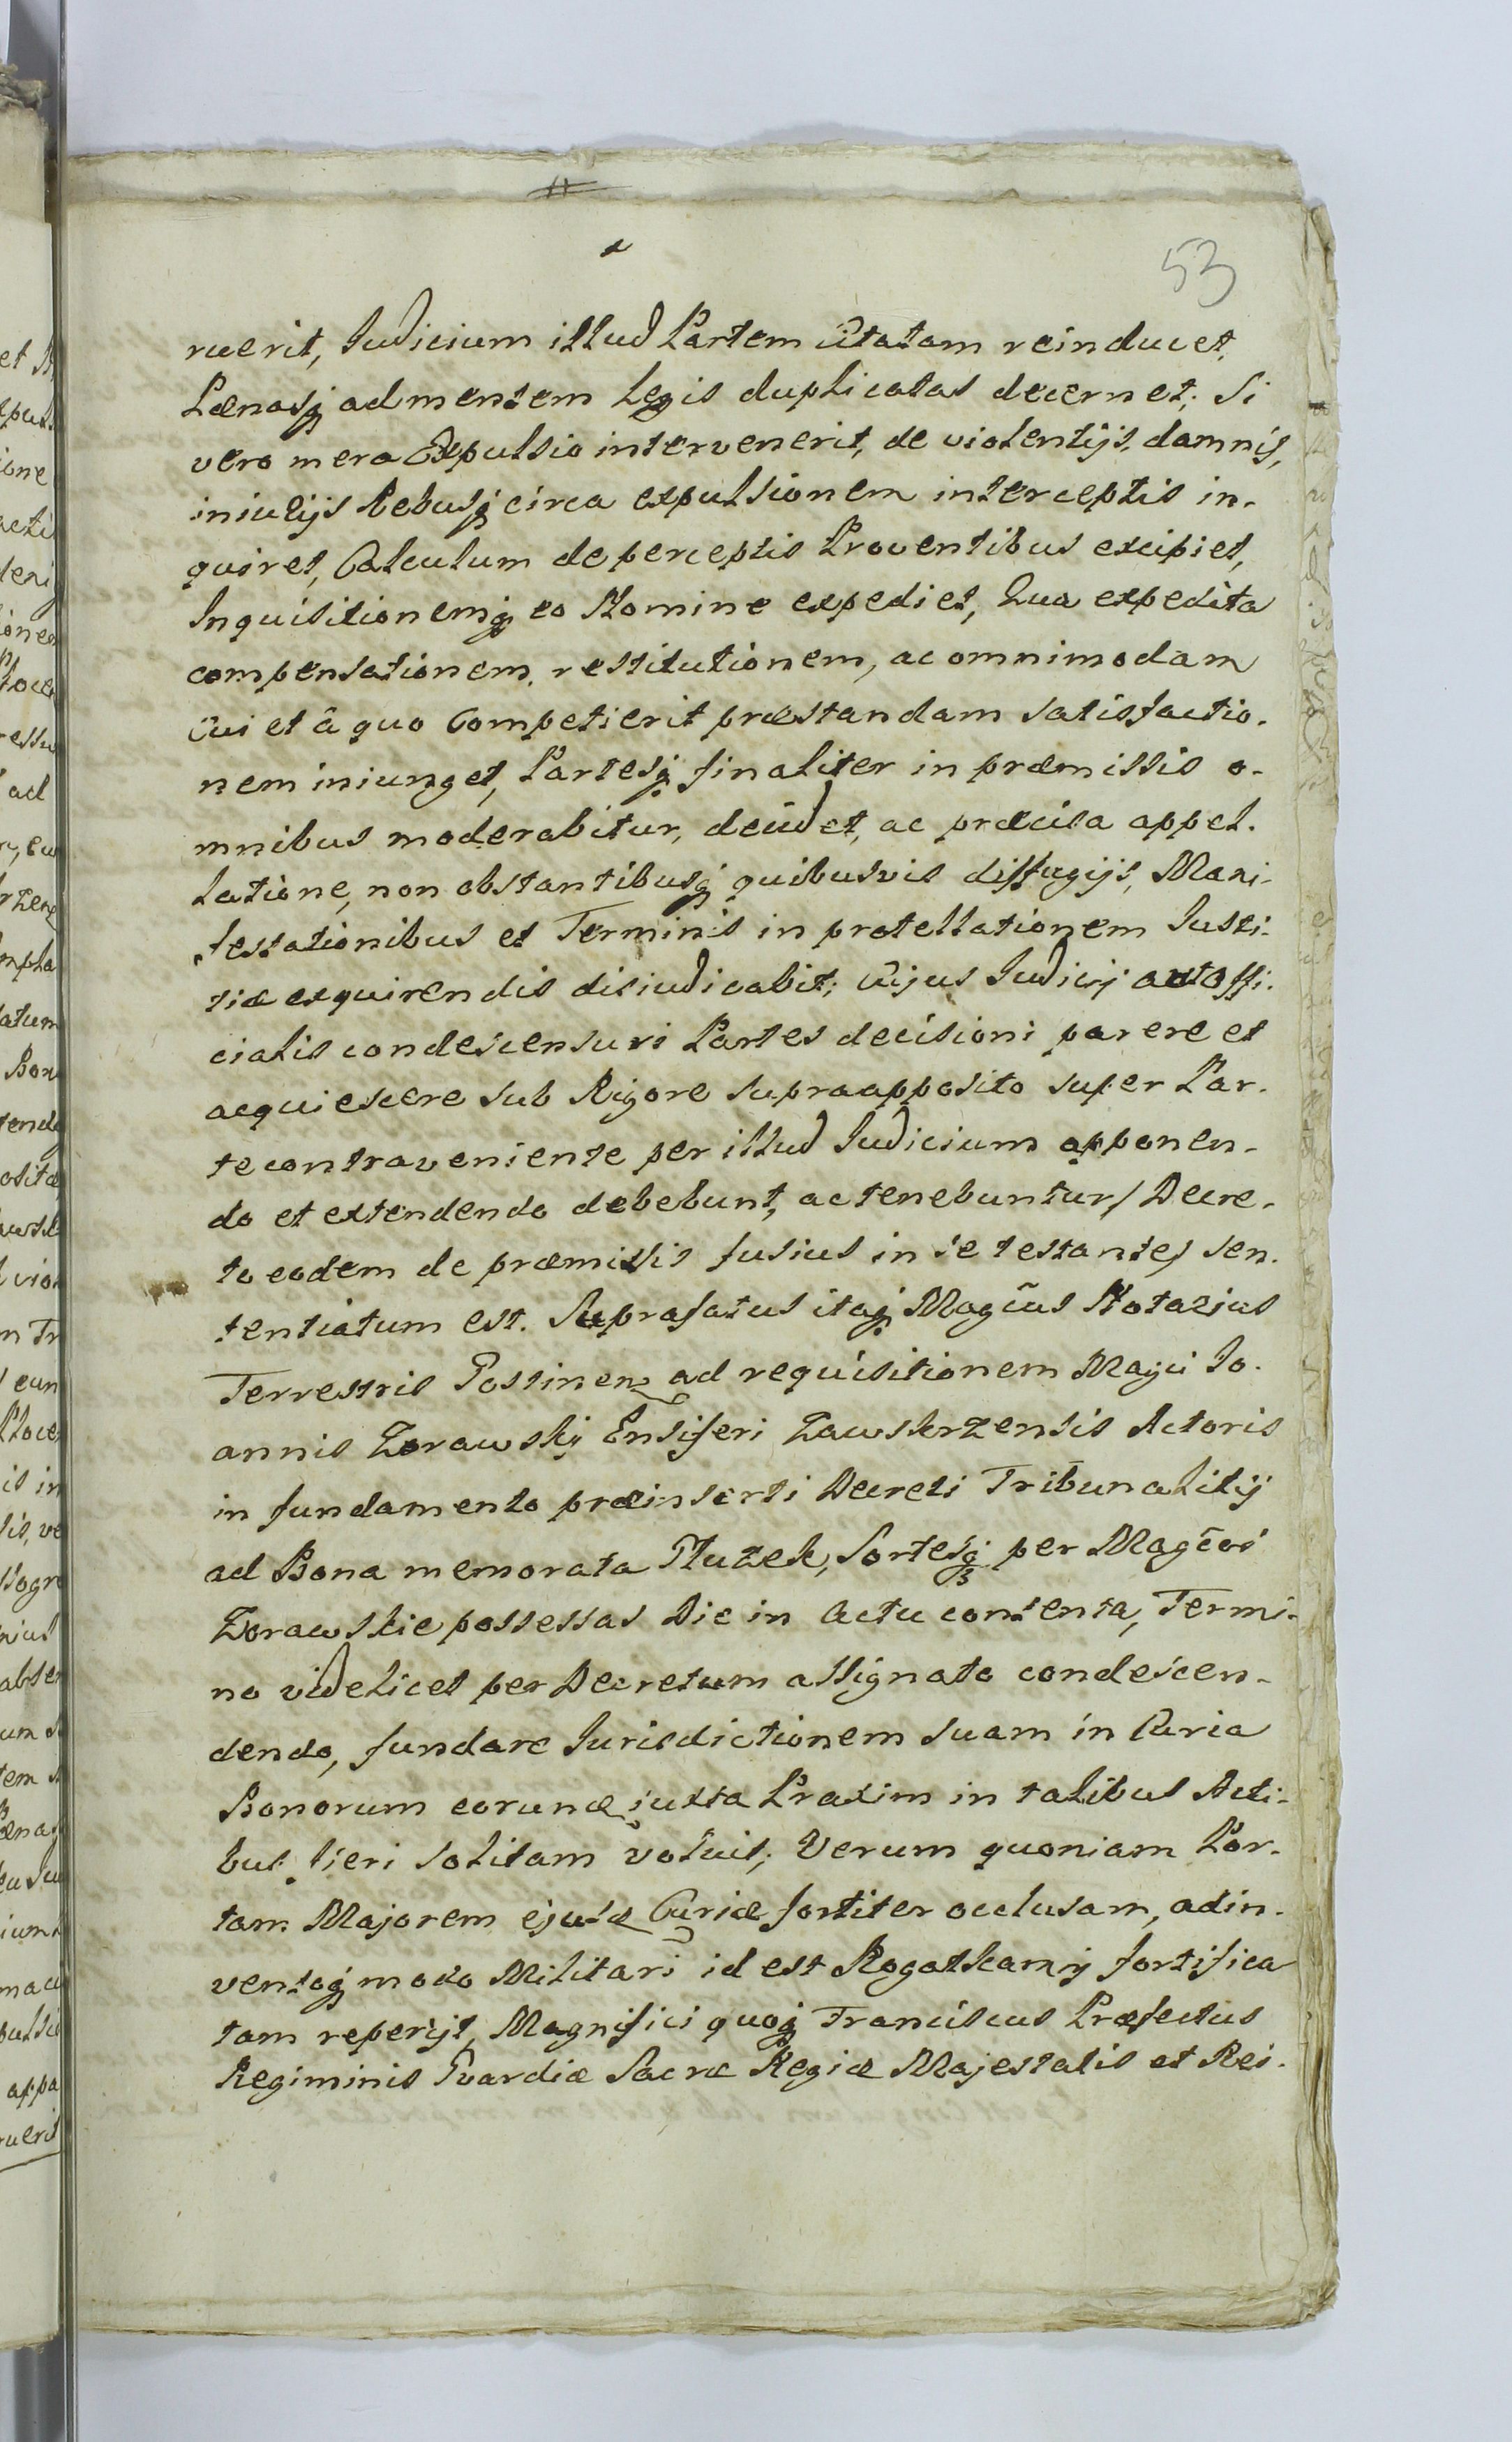 53
ruerit, Judicium illud Partem Citatam reinducet,
Pænasq₃ ad mentem Legis duplicatas decernet; Si
vero mera Expulsio intervenerit, de violentijs, damnis,
iniurijs Rebusq₃ circa expulsionem interceptis in-
quiret, Calculum de perceptis Proventibus excipiet,
Inquisitionemq₃ eo Nomine expediet, Qua expedita
compensationem, restitutionem, ac omnimodam
Cui et â quo Competierit præstandam satisfactio-
nem iniunget, Partesq₃ finaliter in præmissis o-
mnibus moderabitur, decidet, ac præcisa appel-
latione, non obstantibusq₃ quibusvis diffugijs, Mani-
festationibus et Terminis in protellationem Justi-
tiæ exquirendis disiudicabit; Cujus Judicij aut Offi-
cialis condescensuri Partes decisioni parere et
acquiescere sub Rigore supraapposito super Par-
te contraveniente per illud Judicium apponen-
do et extendendo debebunt, ac tenebuntur / Decre-
to eodem de præmissis fusius in se testante / sen-
tentiatum est. Suprafatus itaq₃ Magc̃us Notarius
Terrestris Possinen ad requisitionem Magci Jo-
annis Zorawskij Ensiferi Zawskrzensis Actoris
in fundamento præinserti Decreti Tribunalitij
ad Bona memorata Płuzek, Sortesq₃ per Magc̃os
Zorawskie possessas Die in Actu contenta, Termi-
no videlicet per Decretum assignato condescen-
dendo, fundare Jurisdictionem suam in Curia
Bonorum eorund juxta Praxim in talibus Acti-
bus fieri solitam voluit; Verum quoniam Por-
tam Majorem ejusd Curiæ fortiter occlusam, adin-
ventoq₃ modo Militari id est Rogatkamij fortifica
tam reperijt, Magnifici quoq₃ Franciscus Præfectus
Regiminis Gvardiæ Sacræ Regiæ Majestatis et Rei-